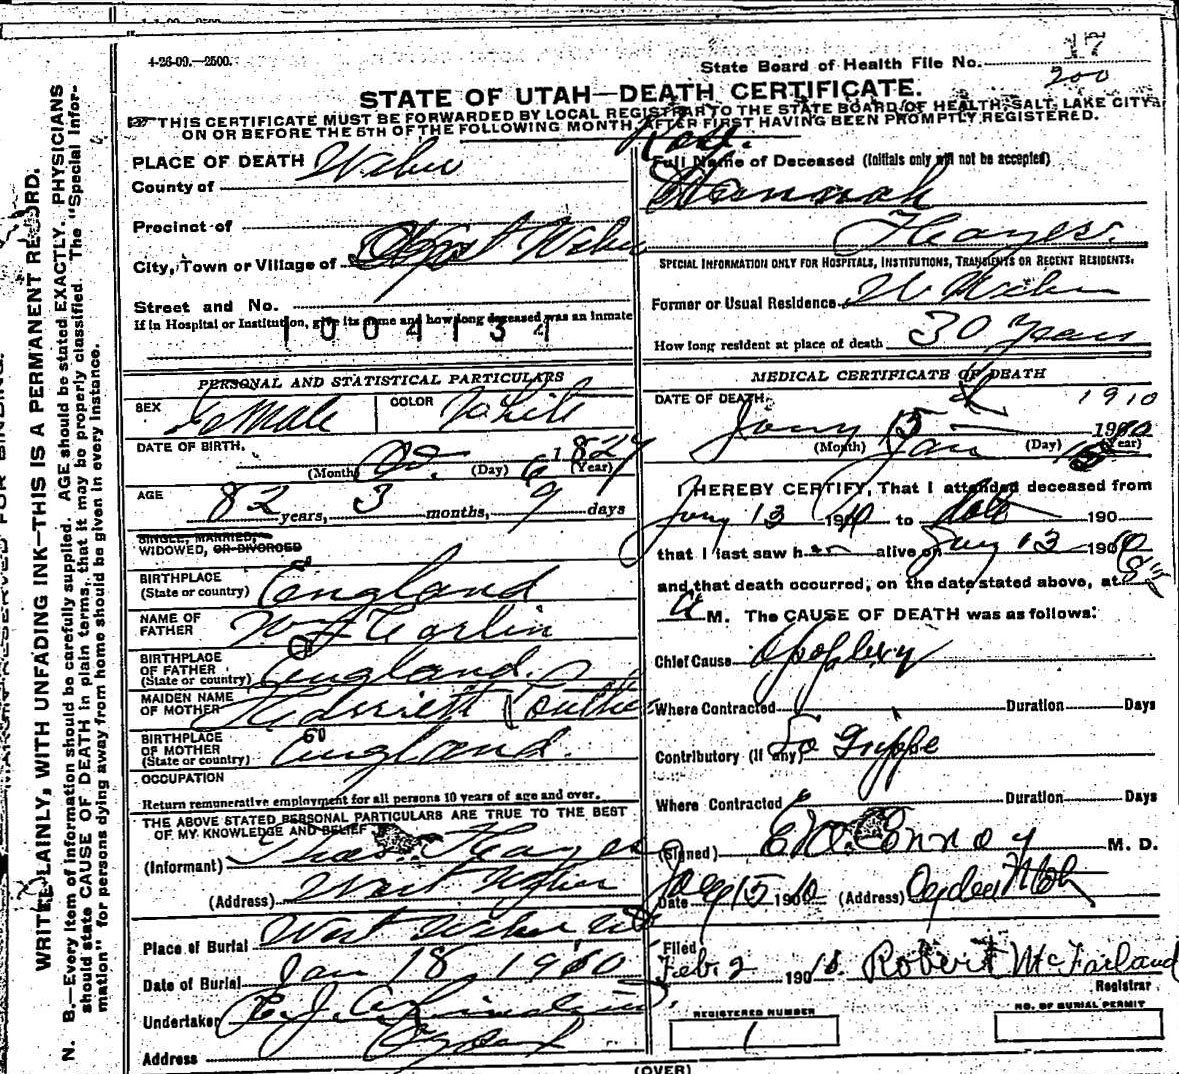 4-26-09.—2500.
State Board of Health File No. 17
200
STATE OF UTAH—DEATH CERTIFICATE.
THIS CERTIFICATE MUST BE FORWARDED BY LOCAL REGISTRAR TO THE STATE BOARD OF HEALTH, SALT LAKE CITY,
ON OR BEFORE THE 5TH OF THE FOLLOWING MONTH AFTER FIRST HAVING BEEN PROMPTLY REGISTERED.
PLACE OF DEATH
County of Weber
Precinct of
City, Town or Village of West Weber
Street and No.
If in Hospital or Institution, give its name and how long deceased was an inmate
1004134
PERSONAL AND STATISTICAL PARTICULARS
SEX Female COLOR White
DATE OF BIRTH. Oct. 6 1827
(Month) (Day) (Year)
AGE 82 years, 3 months, 9 days
SINGLE, MARRIED,
WIDOWED, OR DIVORCED
BIRTHPLACE
(State or country) England
NAME OF
FATHER
BIRTHPLACE
OF FATHER
(State or country) England.
MAIDEN NAME
OF MOTHER
BIRTHPLACE
OF MOTHER
(State or country) England.
OCCUPATION
Return remunerative employment for all persons 10 years of age and over.
THE ABOVE STATED PERSONAL PARTICULARS ARE TRUE TO THE BEST
OF MY KNOWLEDGE AND BELIEF
(Informant) Thos. Hayes
(Address) West Weber
Place of Burial West Weber
Date of Burial Jan 18, 1910
Undertaker
Address Ogden
Full Name of Deceased (Initials only will not be accepted)
Hannah
Hayes.
SPECIAL INFORMATION ONLY FOR HOSPITALS, INSTITUTIONS, TRANSIENTS OR RECENT RESIDENTS.
Former or Usual Residence W Weber
How long resident at place of death 30 Years
MEDICAL CERTIFICATE OF DEATH
DATE OF DEATH. 1910
Jany 15 190
(Month) Jan (Day) 15 (Year)
I HEREBY CERTIFY, That I attended deceased from
Jany 13 1910 to date 190
that I last saw her alive on Jany 13 1910
and that death occurred, on the date stated above, at 8
A M. The CAUSE OF DEATH was as follows:
Chief Cause Apoplexy
Where Contracted Duration Days
Contributory (if any) La Grippe
Where Contracted Duration Days
(Signed) M. D.
Date Jany 15 1910 (Address) Ogden Utah
Filed
Feb. 2 1910. Robert McFarland
Registrar
REGISTERED NUMBER
1
NO. OF BURIAL PERMIT
(OVER)
WRITE PLAINLY, WITH UNFADING INK—THIS IS A PERMANENT RECORD.
N. B.—Every item of information should be carefully supplied. AGE should be stated EXACTLY. PHYSICIANS
should state CAUSE OF DEATH in plain terms, that it may be properly classified. The "Special Infor-
mation" for persons dying away from home should be given in every instance.